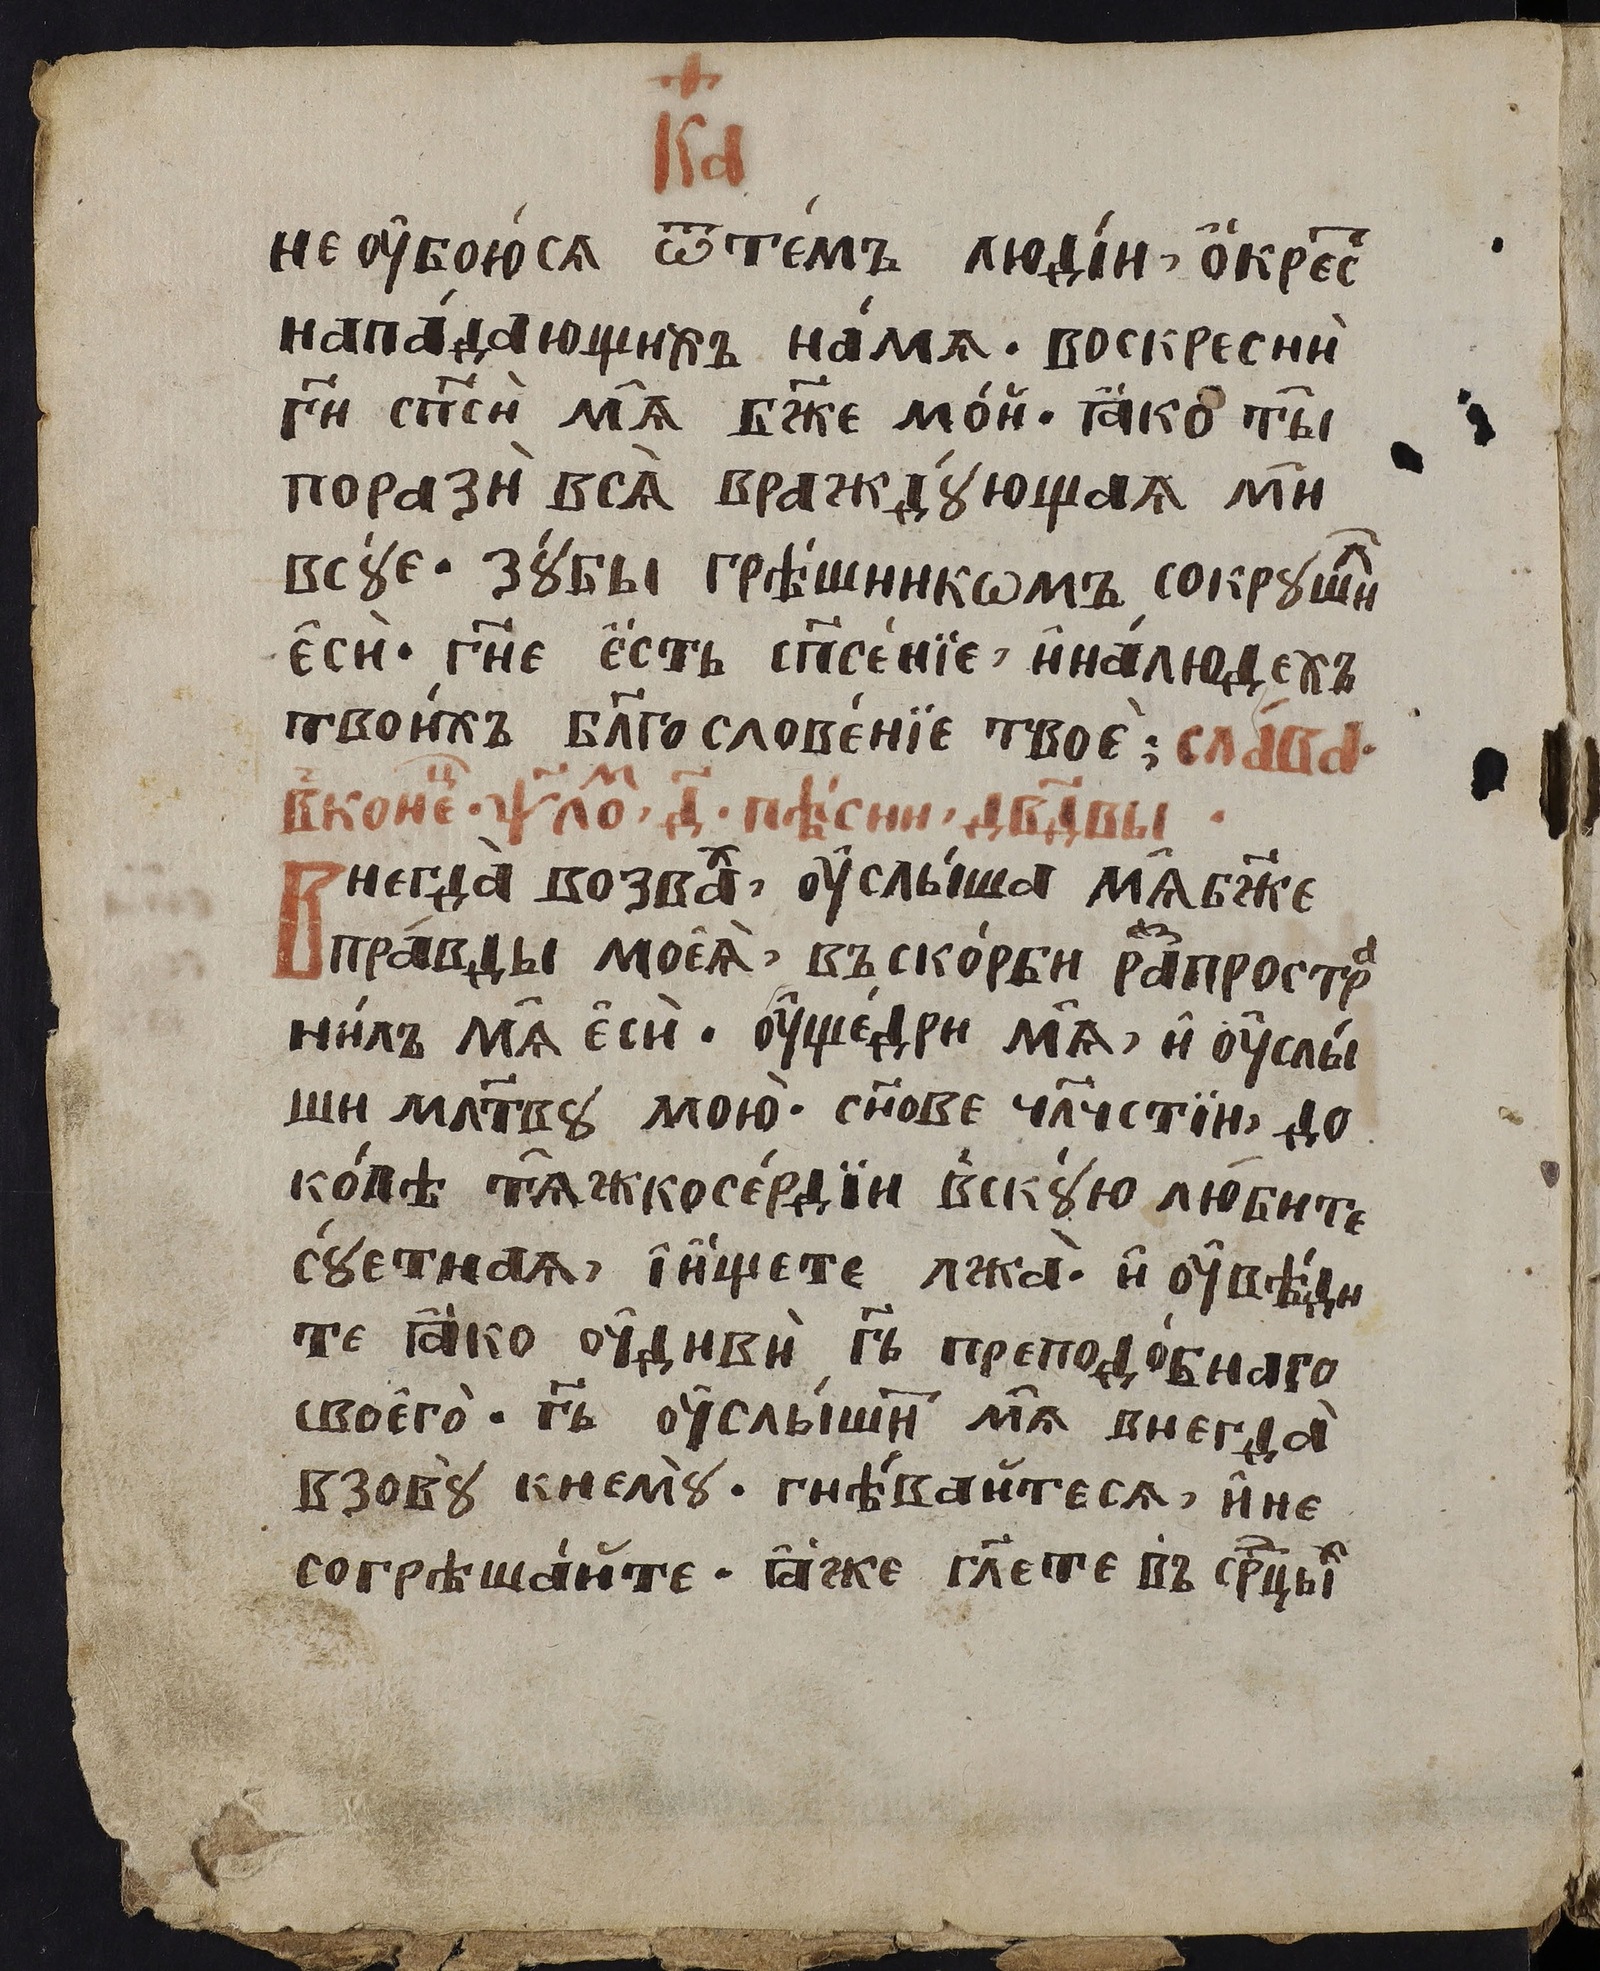 к҃а
не оу҆бою́сѧ ѿте́мъ людї́и, ѻ҆́крес҃
напа́дающихъ на́мѧ. воскреснѝ
гд҃и сп҃сѝ мѧ̑ бж҃е мо́й. ꙗ҆́кѻ ты̑
поразѝ всѧ̀ враждꙋ́ющаѧ ми̑
всꙋ́е. зꙋ́бы грѣ́шникѡмъ сокрꙋши́лъ
є҆сѝ. гн҃е є҆́сть сп҃се́нїе, и҆на́людехъ
твои́хъ блг҃ослове́нїе твоѐ; сла́ва.
в̾коне́ц. ѱ҃ломъ, д҃. пѣ́сни, дв҃двы.
Внегда̀ возвах, оу҆слы́ша мѧ̑бж҃е
пра́вды моеѧ̀, въско́рби распростра
ни́лъ мѧ̑ є҆сѝ. оу҆ще́дри мѧ̑, и҆ оу҆слы́
ши мл҃твꙋ мою̀. сн҃ове чл҃чстїи, до
ко́лѣ тѧ̑жкосе́рдїи в̾скꙋ́ю лю́бите
сꙋ́етнаѧ, і҆и҆́щете лжа̀. и҆ оу҆вѣ́ди
те ꙗ҆́ко оу҆дивѝ гд҃ь преподо́бнаго
своєго̀. гд҃ь оу҆слы́ши҃т мѧ̑ внегда̀
взовꙋ̀ кнемꙋ̀. гнѣ́вайтесѧ, и҆не
согрѣша́йте. ꙗ҆́же гл҃ете в̾ъ срц҃ых